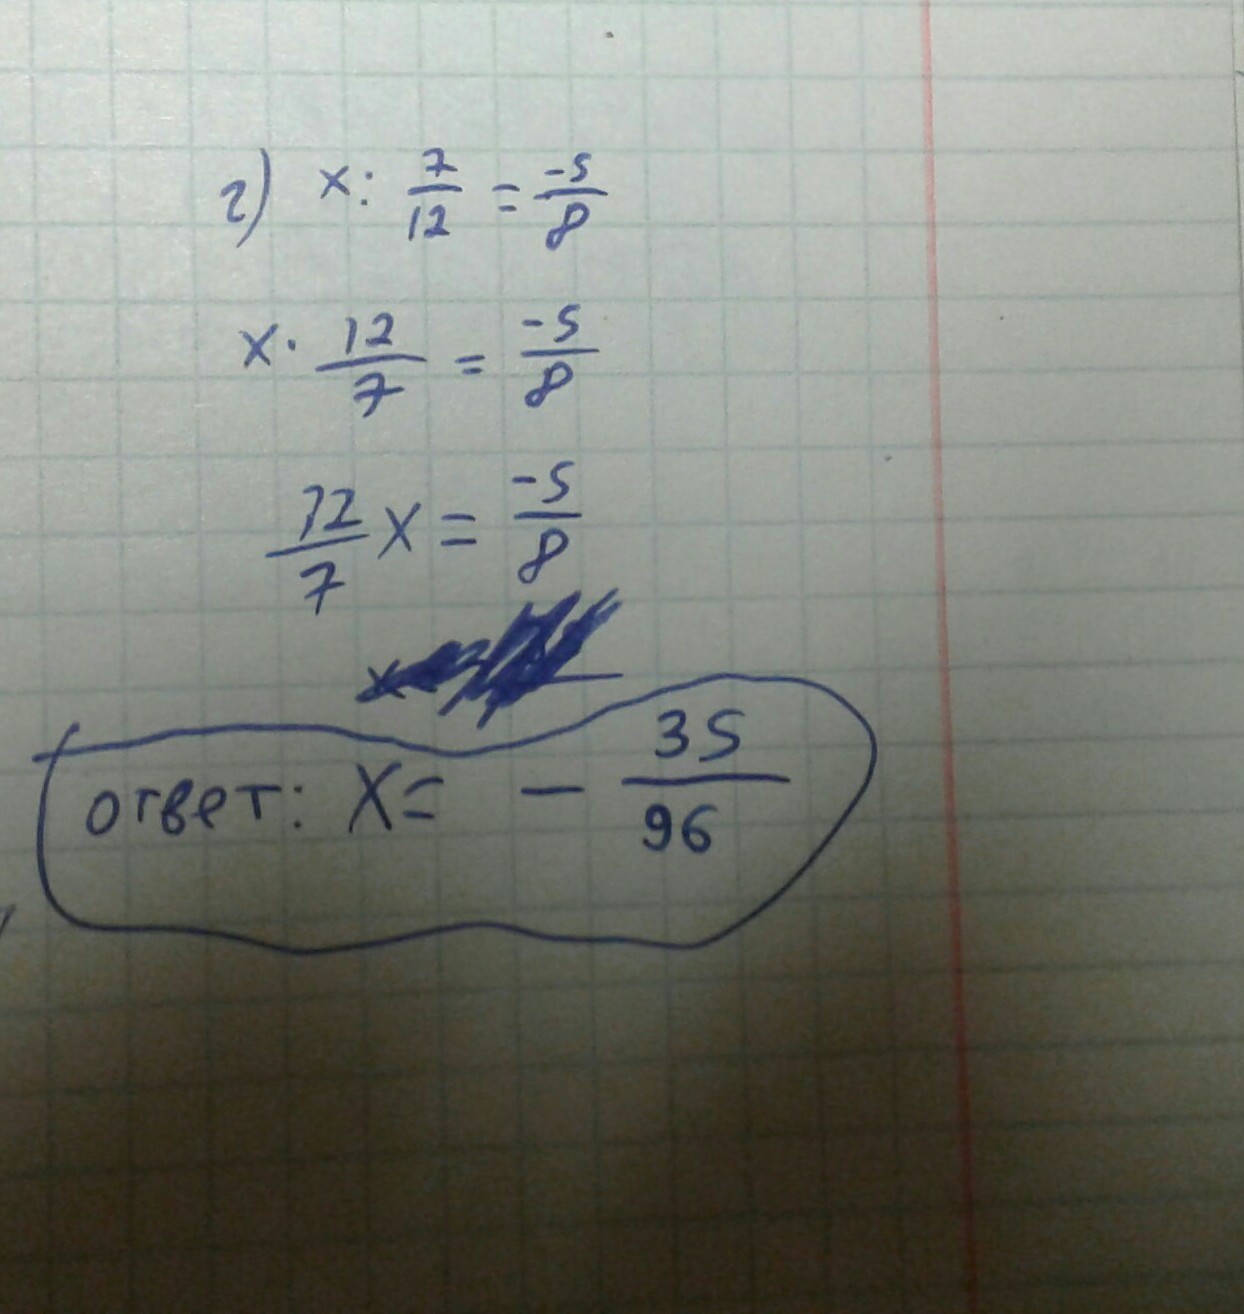 г) x : 7/12 = -5/8
x · 12/7 = -5/8
12/7 x = -5/8
ответ: x = - 35/96